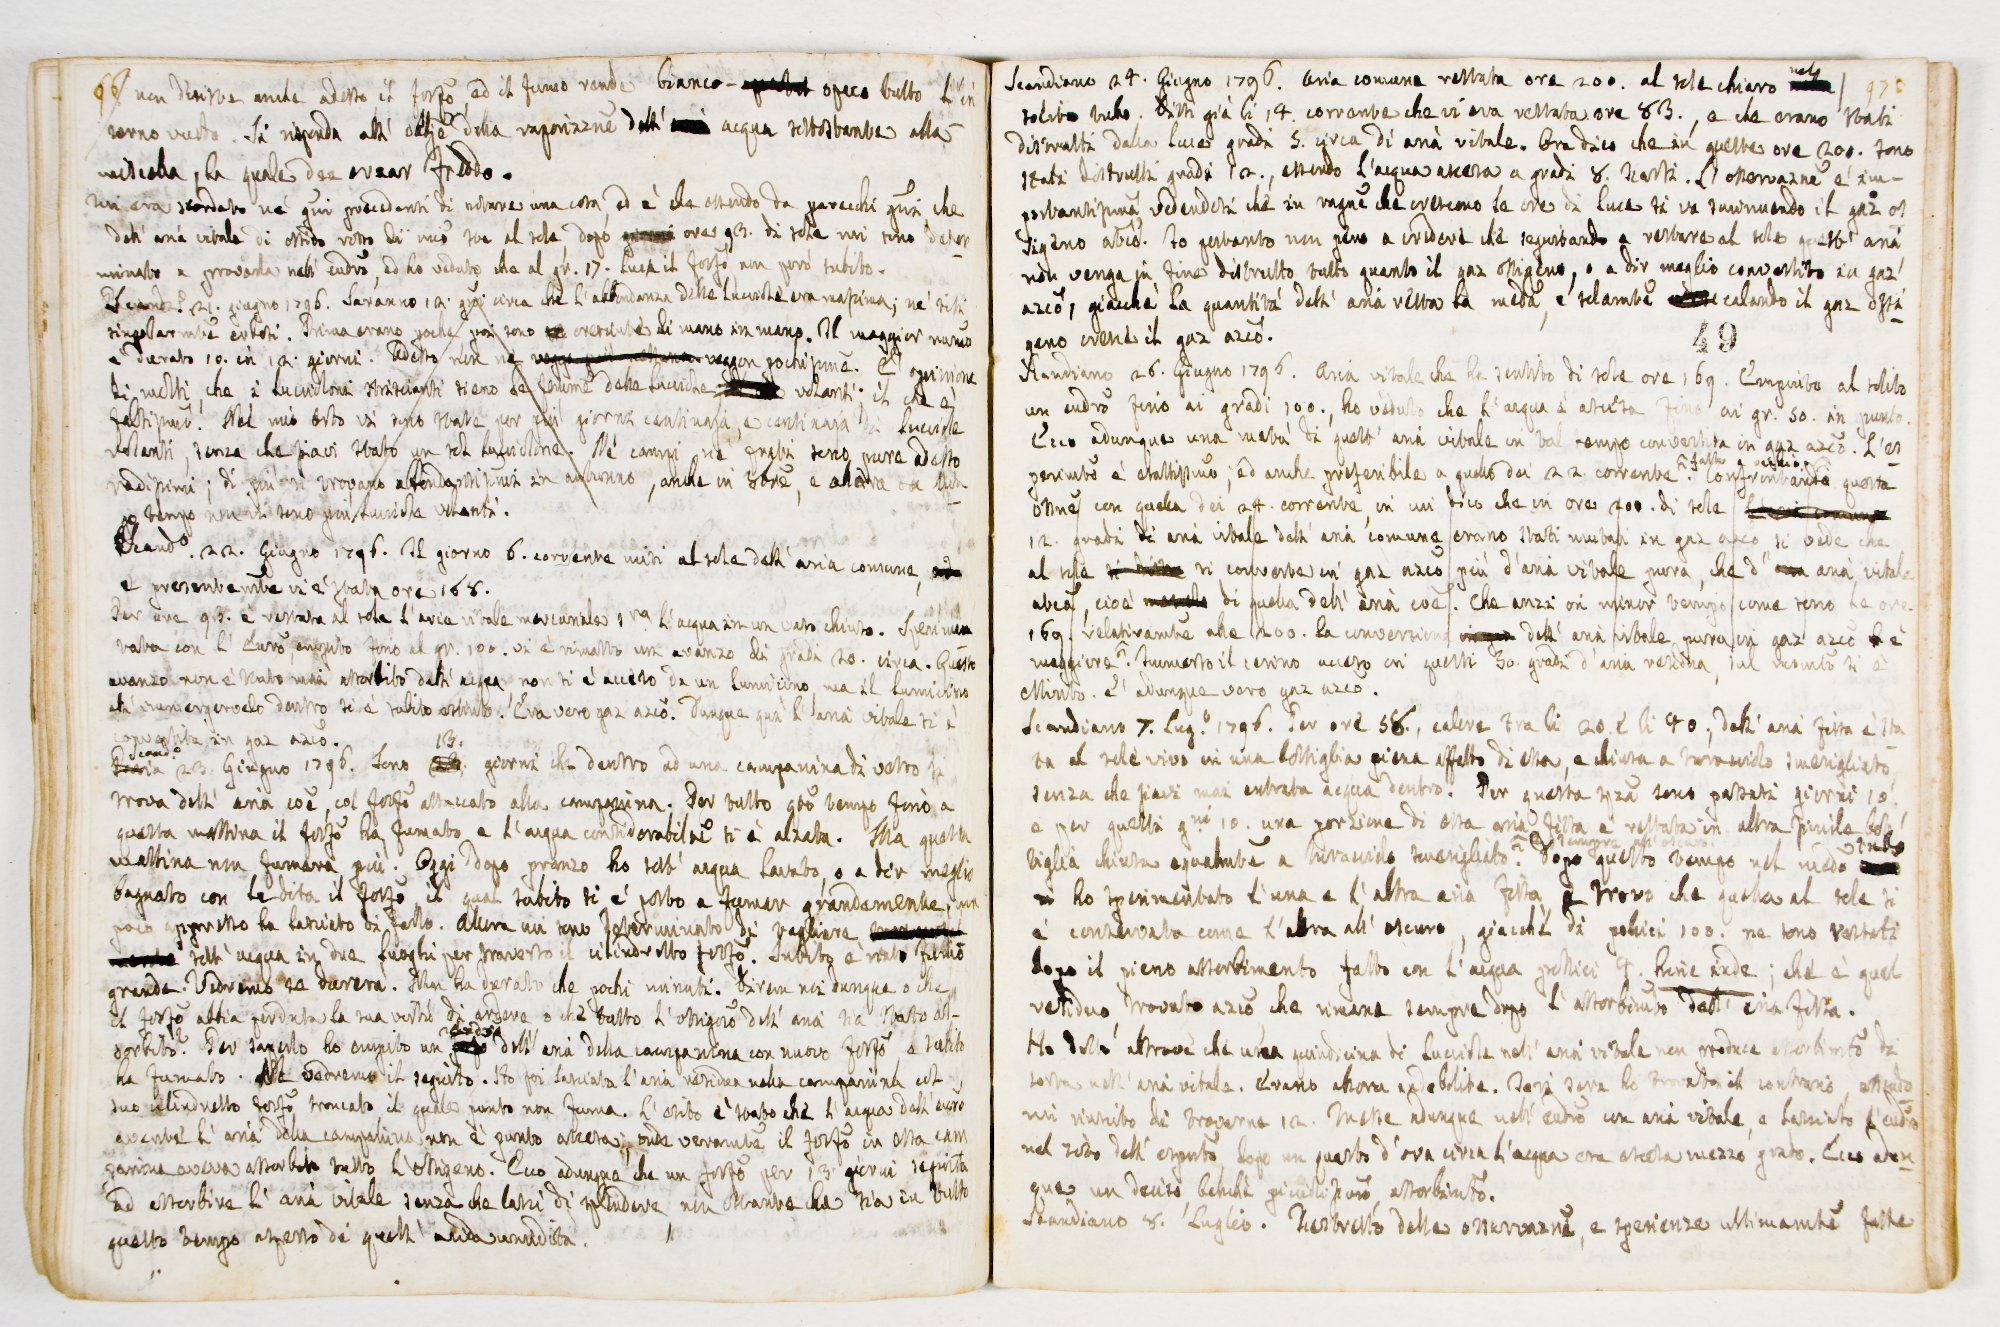 96/ non desiste anche adesso, il fosfo, ed il fumo rende bianco- opaco tutto l'in
terno vuoto. Si riponda all' della vaporizzne dell' acqua sottostante alla
miscela, la quale dee svaar freddo.
Mi era scordato ne' gni precedenti di notare una cosa, ed è che essendo da parecchi gni che
dell' aria vitale di ossido rosso da me sta al sole, dopo ore 93. di sole mi sono deter
minato a provarla nell' eudro, ed ho veduto che al gr. 17. luca il fosfo non però subito.
Scando. 21. giugno 1796. Saranno 12. gni circa che l'abbondanza delle lucciole era massima; ne' siti
singolarmte erbosi. Prima erano poche, poi sono cresciute di mano in mano. Il maggior numo
è durato 10. in 12. giorni. Adesso non ne veggon pochissime. E' opinione
di molti, che i luccioloni striscianti sieno le femme delle lucciole volanti: il che è
falsissimo. Nel mio orto vi sono state per più giorni centinaja, e centinaja di lucciole
volanti, senza che siavi stato un sol lucciolone. Ne' campi, ne' prati sono pure adesso
radissimi; di più si trovano abbondantissimi in autunno, anche in 8bre, e allora da lun
go tempo non vi sono più lucciole volanti.
Scando. 22. Giugno 1796. Il giorno 6. corrente misi al sole dell' aria comune,
e presentemte vi è stata ore 168.
Per ore 93. è restata al sole l'aria vitale mercuriale 1ra l'acqua in un vaso chiuso. Sperimen
tata con l' Euro, empito fino al gr. 100. vi è rimasto un avanzo di gradi 20. circa. Questo
avanzo non è stato mai assorbito dall' acqua non si è acceso da un lumicino, ma il lumicino
all' immergervelo dentro si è subito estinto. Era vero gaz azco. Dunque qua l' aria vitale si è
convertita in gaz azco.
Scando. 23. Giugno 1796. Sono 13. giorni che dentro ad una campanina di vetro si
trova dell' aria coe, col fosfo attaccato alla campanina. Per tutto qsto tempo fino a
questa mattina il fosfo ha fumato, e l'acqua considerabilmte si è alzata. Ma questa
mattina non fumava più. Oggi dopo pranzo ho sott' acqua lavato, o a dir meglio
bagnato con le dita il fosfo, il qual subito si è posto a fumar grandemente,
poco appresso ha lasciato di farlo. Allora mi sono determinato di tagliare
sott' acqua in due luoghi per traverso il cilindretto fosfo. Subito è nato fumo
grande. Vedremo se durera. Ma ha durato che pochi minuti. Direm noi dunque o che
il fosfo abbia perduta la sua virtù di ardere o che tutto l'ossigeno dell' aria sia stato as-
sorbito? Per saperlo ho empito un eudro dell' aria della campanina con nuovo fosfo e subito
ha fumato. Ne vedremo il seguito. Ho poi lasciata l'aria residua nella campanina col
suo cilindretto fosfo troncato il quale punto non fuma. L'esito è stato che l'acqua dell' euro
avente l'aria della campanina non è punto ascesa; onde veramte il fosfo in essa cam
panina aveva assorbito tutto l'ossigeno. Ecco adunque che un fosfo per 13 giorni seguita
ad assorbire l'aria vitale senza che lasci di splendere non ostante che sia in tutto
questo tempo asperso di quell' acida umidita.
Scandiano 24. Giugno 1796. Aria comune restata ore 200. al sole chiaro nel
solito tubo. Dissi già li 14. corrente che vi era restata ore 83., e che erano stati
distrutti dalla luce gradi 5. circa di aria vitale. Ora dico che in queste ore 200. sono
stati distrutti gradi 12., essendo l'acqua ascesa a gradi 8. scarsi. L'osservazne è im-
portantissima vedendosi che in ragne che crescono le ore di luce si va sminuendo il gaz os
sigeno atco. Io pertanto non peno a credere che seguitando a restare al sole quest' aria
non venga in fine distrutto tutto quanto il gaz ossigeno, o a dir meglio convertito in gaz
azco, giacchè la quantità dell' aria resta la meda, e solamte calando il gaz ossi
geno cresce il gaz azco.
49
Scandiano 26. Giugno 1796. Aria vitale che ha sentito di sole ore 169. Empito al solito
un eudro fino ai gradi 100., ho veduto che l'acqua è ascesa fino ai gr. 50. in punto.
Ecco adunque una metà di quest' aria vitale in tal tempo convertita in gaz azco. L'es
perimto è esattissimo, ed anche preferibile a quello dei 22. corrente. Confrontante questa
ossne con quella dei 24. corrente, in cui dico che in ore 200. di sole
12. gradi di aria vitale dell' aria comune erano stati mutati in gaz azco si vede che
al sole si converte in gaz azco più d'aria vitale pura, che d' aria vitale
atca, cioè di quella dell' aria coe. Che anzi in minor tempo come sono le ore
169. relativamte alle 200. la conversione dell' aria vitale pura in gaz azco è
maggiore. Immerso il cerino acceso in questi 50. gradi d'aria residua, sul momto si è
estinto. E' adunque vero gaz azco.
Scandiano 7. Lugo. 1796. Per ore 58., calore tra li 20. e li 40., dell' aria fissa è sta
ta al sole vivo in una bottiglia piena affatto di essa, e chiusa a turacciolo smerigliato,
senza che siavi mai entrata acqua dentro. Per questa spza sono passati giorni 10.
e per questi gni 10. una porzione di essa aria fissa è restata in altra simile bot
tiglia chiusa egualmte a turacciolo smerigliato. Dopo questo tempo nel modo solito
ho sperimentato l'una e l'altra aria fissa e trovo che quella al sole si
è conservata come l'altra all' oscuro, giacchè di pollici 100. ne sono restati
dopo il pieno assorbimento fatto con l'acqua pollici 4. hinc inde; che è quel
residuo trovato azco che rimane sempre dopo l'assorbimto dell' aria fissa.
Ho detto altrove che una quindicina di lucciole nell' aria vitale non produce assorbimto di
sorta nell' aria vitale. Erano allora indebolite. Jeri sera ho trovato il contrario, essendo
mi riuscito di trovarne 12. Messe adunque nell' eudro con aria vitale, e lasciato l'eudro
nel sodo dell' esputo, dopo un quarto d'ora circa l'acqua era ascesa mezzo grado. Ecco adun
que un deciso benchè piccolissimo assorbimto.
Scandiano 8. Luglio. Ristretto delle osservazne, e sperienze ultimamte fatte